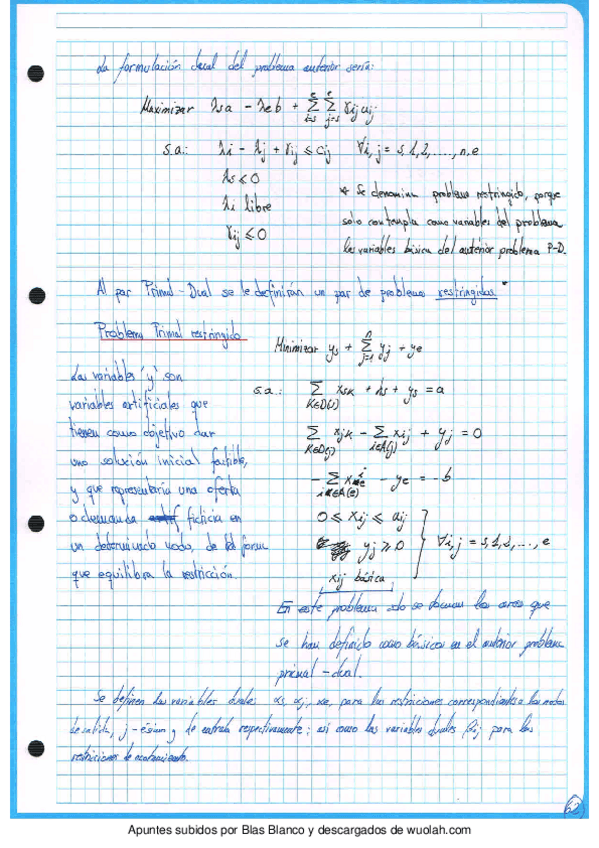 La formulación dual del problema anterior sería:
Maximizar λsa - λeb + Σ Σ γij aij
s.a.: λi - λj + γij ≤ cij ∀i,j = s,1,2,...,n,e
λs ≤ 0
λi libre
γij ≤ 0
* Se denomina problema restringido, porque
solo contempla como variables del problema
las variables básicas del anterior problema P-D.
Al par Primal-Dual se le definirán un par de problemas restringidos *
Problema Primal restringido
Minimizar ys + Σ yj + ye
j=1
Las variables "y" son
variables artificiales que
tienen como objetivo dar
una solución inicial factible,
y que representaría una oferta
o demanda ficticia en
un determinado nodo, de tal forma
que equilibra la restricción.
s.a.: Σ xsk + hs + ys = a
K∈D(s)
Σ xjk - Σ xij + yj = 0
K∈D(j) i∈A(j)
- Σ xie - ye = -b
i∈A(e)
0 ≤ xij ≤ aij
yj ≥ 0
∀i,j = s,1,2,...,e
xij básica
En este problema solo se toman los arcos que
se han definido como básicos en el anterior problema
primal-dual.
Se definen las variables duales αs, αj, αe, para las restricciones correspondientes a los nodos
de salida, j-ésimo y de entrada respectivamente; así como las variables duales βij para las
restricciones de acotamiento.
62
Apuntes subidos por Blas Blanco y descargados de wuolah.com